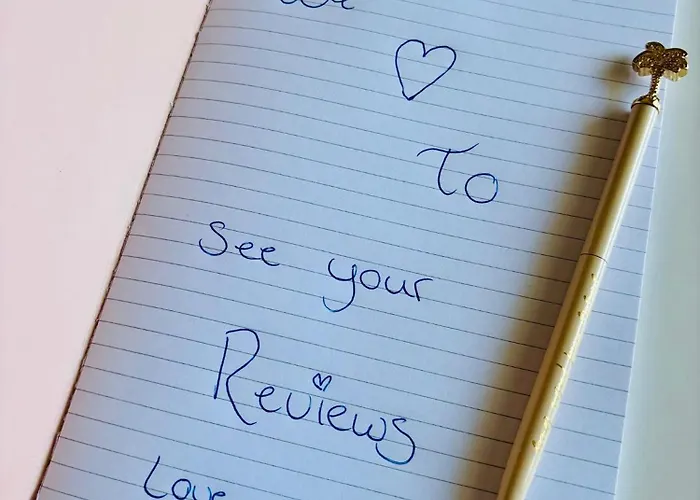 We
♡
To
See your
Reviews
Love